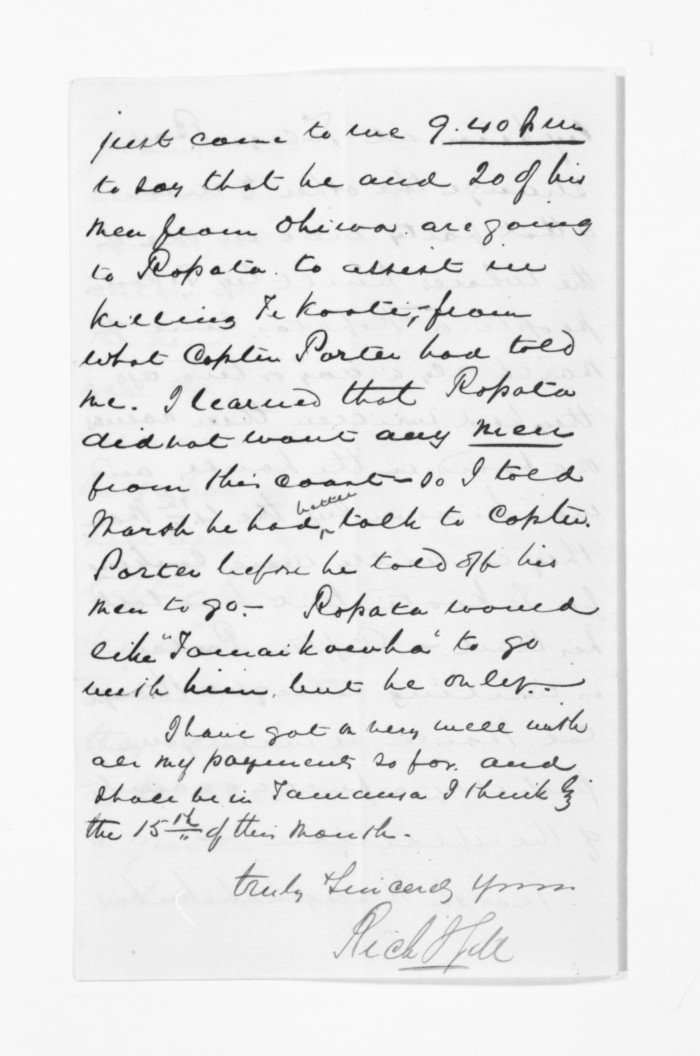 just come to me 9.40 pm
to say that he and 20 of his
men from Ohiwa are going
to Ropata. to assist in
killing Te Kooti, – from
what Captn Porter had told
me. I learned that Ropata
did not want any men
from this coast – so I told
Marsh he had better talk to Captn.
Porter before he told off his
men to go. – Ropata would
like "Tamaikowha" to go
with him. but he only. –
I have got on very well with
all my payments so far. and
shall be in Tauranga I think by
the 15th of this month.
truly & Sincerely yours
Rich